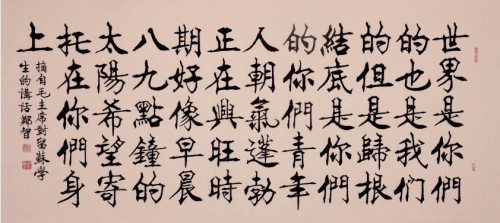 世界是你們
的也是我們
的但是歸根
結底是你們
的你們青年
人朝氣蓬勃
正在興旺時
期好像早晨
八九點鐘的
太陽希望寄
托在你們身
上
摘自毛主席對留蘇學
生的講話鄭智